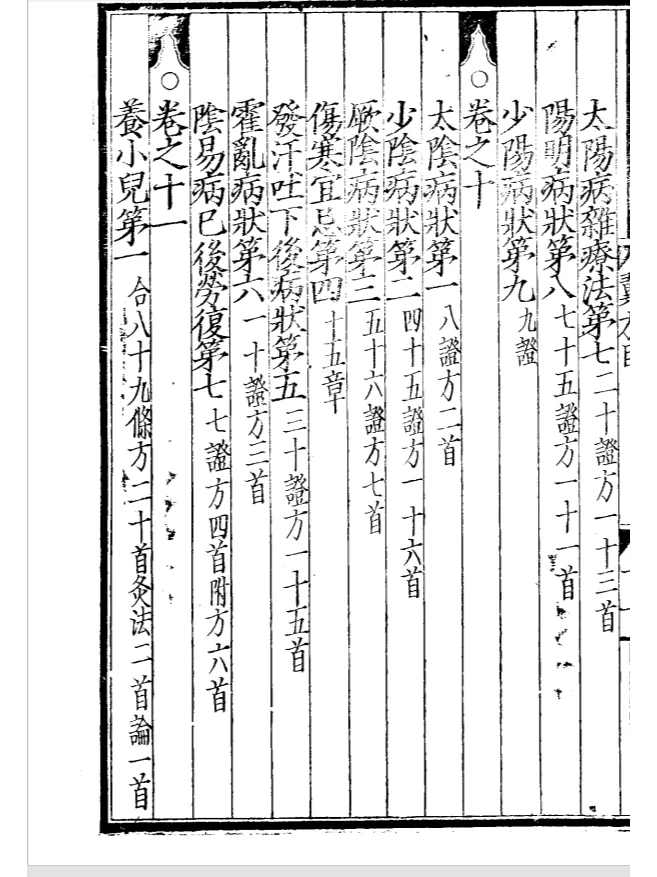 太陽病雜療法第七二十證方一十三首
陽明病狀第八七十五證方一十一首
少陽病狀第九九證
卷之十
太陰病狀第一八證方二首
少陰病狀第二四十五證方一十六首
厥陰病狀第三五十六證方七首
傷寒宜忌第四十五章
發汗吐下後病狀第五三十證方一十五首
霍亂病狀第六一十證方三首
陰易病已後勞復第七七證方四首附方六首
卷之十一
養小兒第一合八十九條方二十首灸法二首論一首